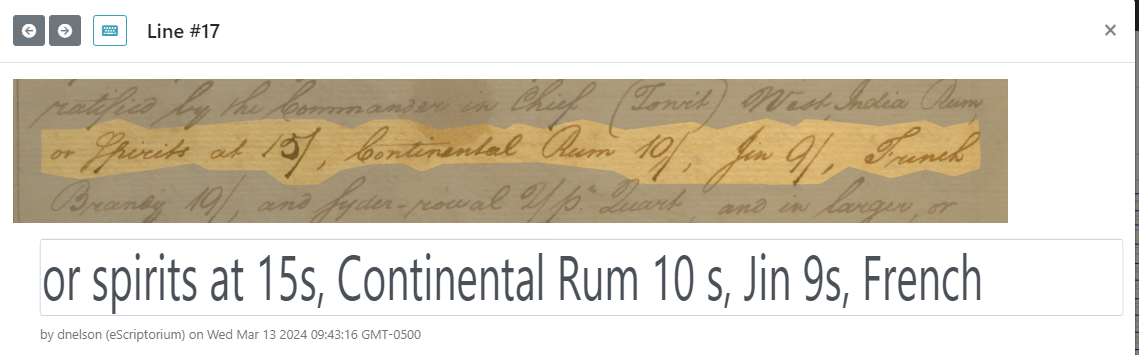 Line #17
ratified by the Commander in Chief (Towit) West India Rum
or Spirits at 15/, Continental Rum 10/, Jin 9/, French
Brandy 19/, and Syder-royal 2/ pr. Quart, and in larger, or
or spirits at 15s, Continental Rum 10 s, Jin 9s, French
by dnelson (eScriptorium) on Wed Mar 13 2024 09:43:16 GMT-0500